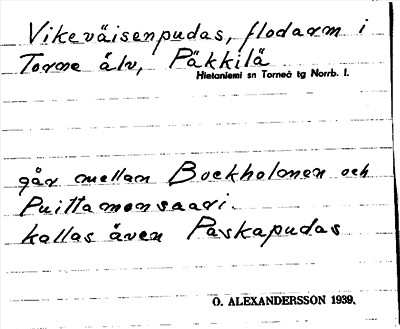 Vikeväisenpudas, flodarm i
Torne älv, Päkkilä
Hietaniemi sn Torneå tg Norrb. l.
går mellan Bockholmen och
Puittamonsaari.
kallas även Paskapudas
O. ALEXANDERSSON 1939.